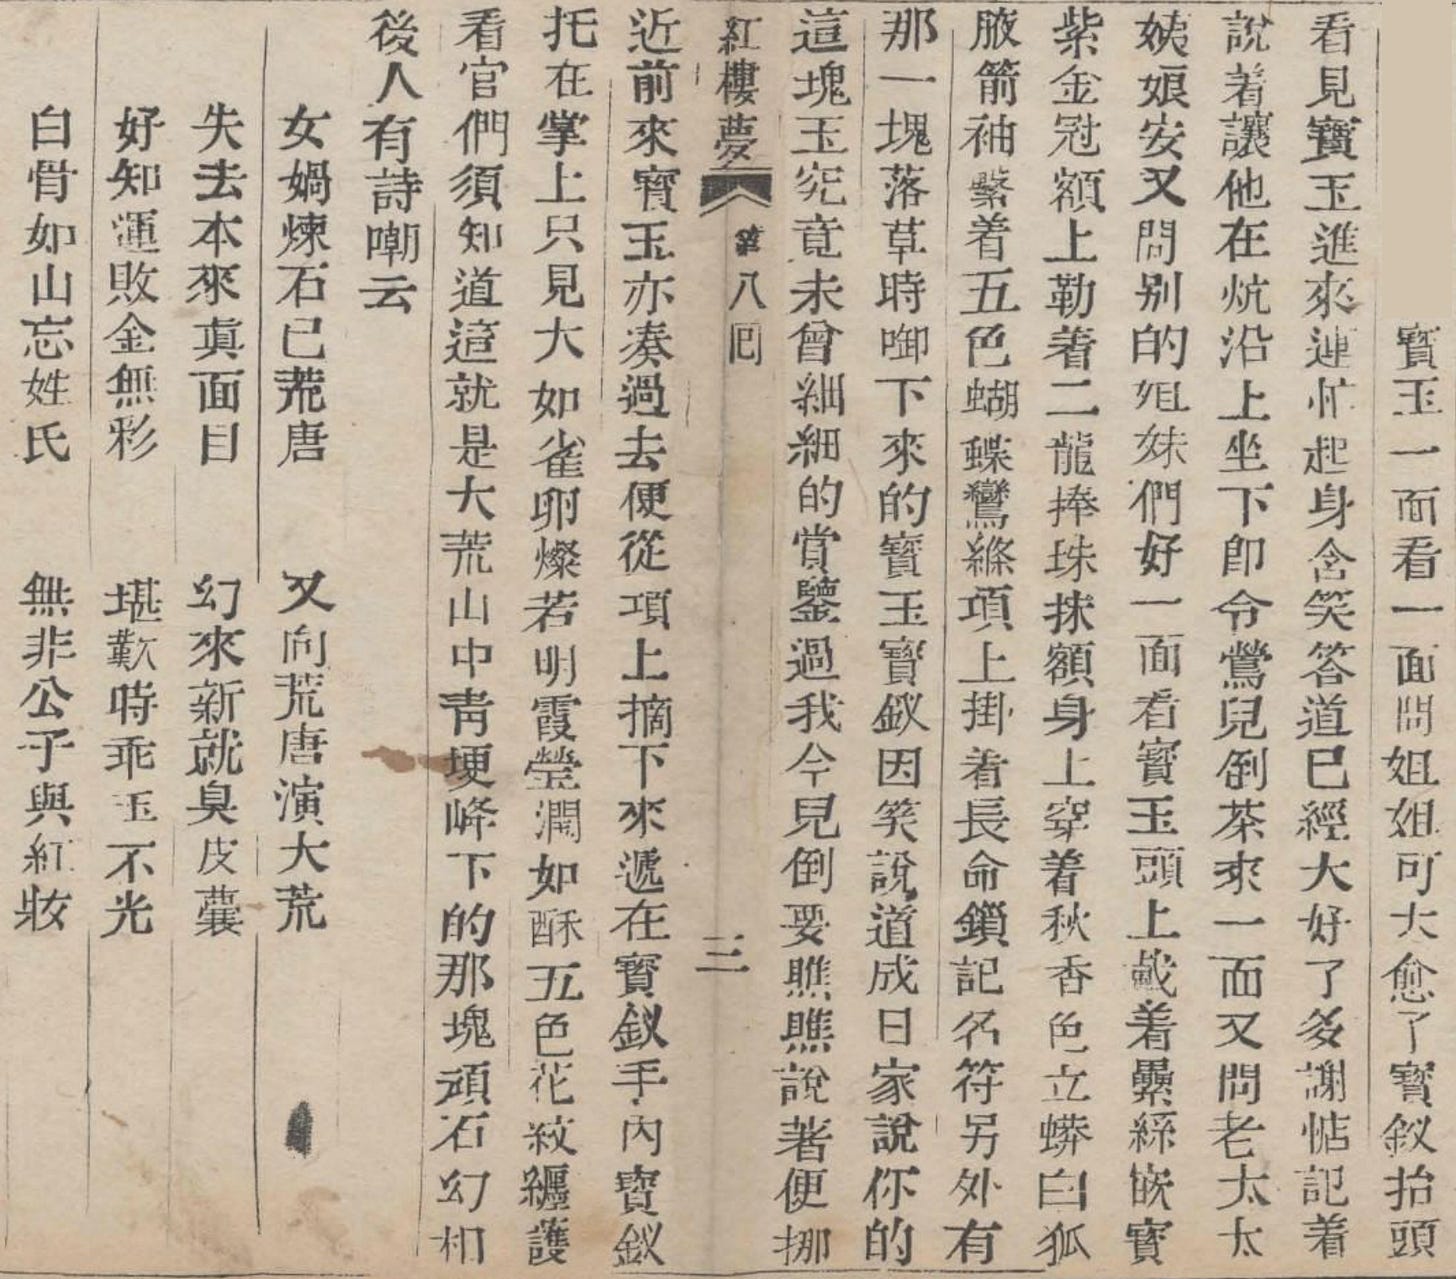 寶玉一面看一面問姐姐可大愈了寶釵抬頭
看見寶玉進來連忙起身含笑答道已經大好了多謝惦記着
說着讓他在炕沿上坐下卽令鶯兒倒茶來一面又問老太太
姨娘安又問别的姐妹們好一面看寶玉頭上戴着纍絲嵌寶
紫金冠額上勒着二龍捧珠抹額身上穿着秋香色立蟒白狐
腋箭袖繫着五色蝴蝶鸞縧項上掛着長命鎖記名符另外有
那一塊落草時啣下來的寶玉寶釵因笑說道成日家說你的
這塊玉究竟未曾細細的賞鑒過我今兒倒要瞧瞧說著便挪
紅樓夢 第八囘 三
近前來寶玉亦湊過去便從項上摘下來遞在寶釵手內寶釵
托在掌上只見大如雀卵燦若明霞瑩潤如酥五色花紋纏護
看官們須知道這就是大荒山中靑埂峰下的那塊頑石幻相
後人有詩嘲云
女媧煉石已荒唐 又向荒唐演大荒
失去本來眞面目 幻來新就臭皮囊
好知運敗金無彩 堪歎時乖玉不光
白骨如山忘姓氏 無非公子與紅妝